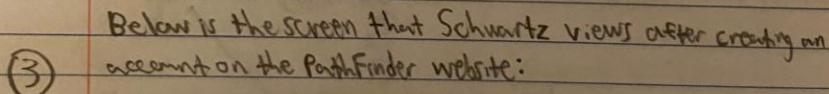 Below is the screen that Schwartz views after creating an
③ account on the PathFinder website: